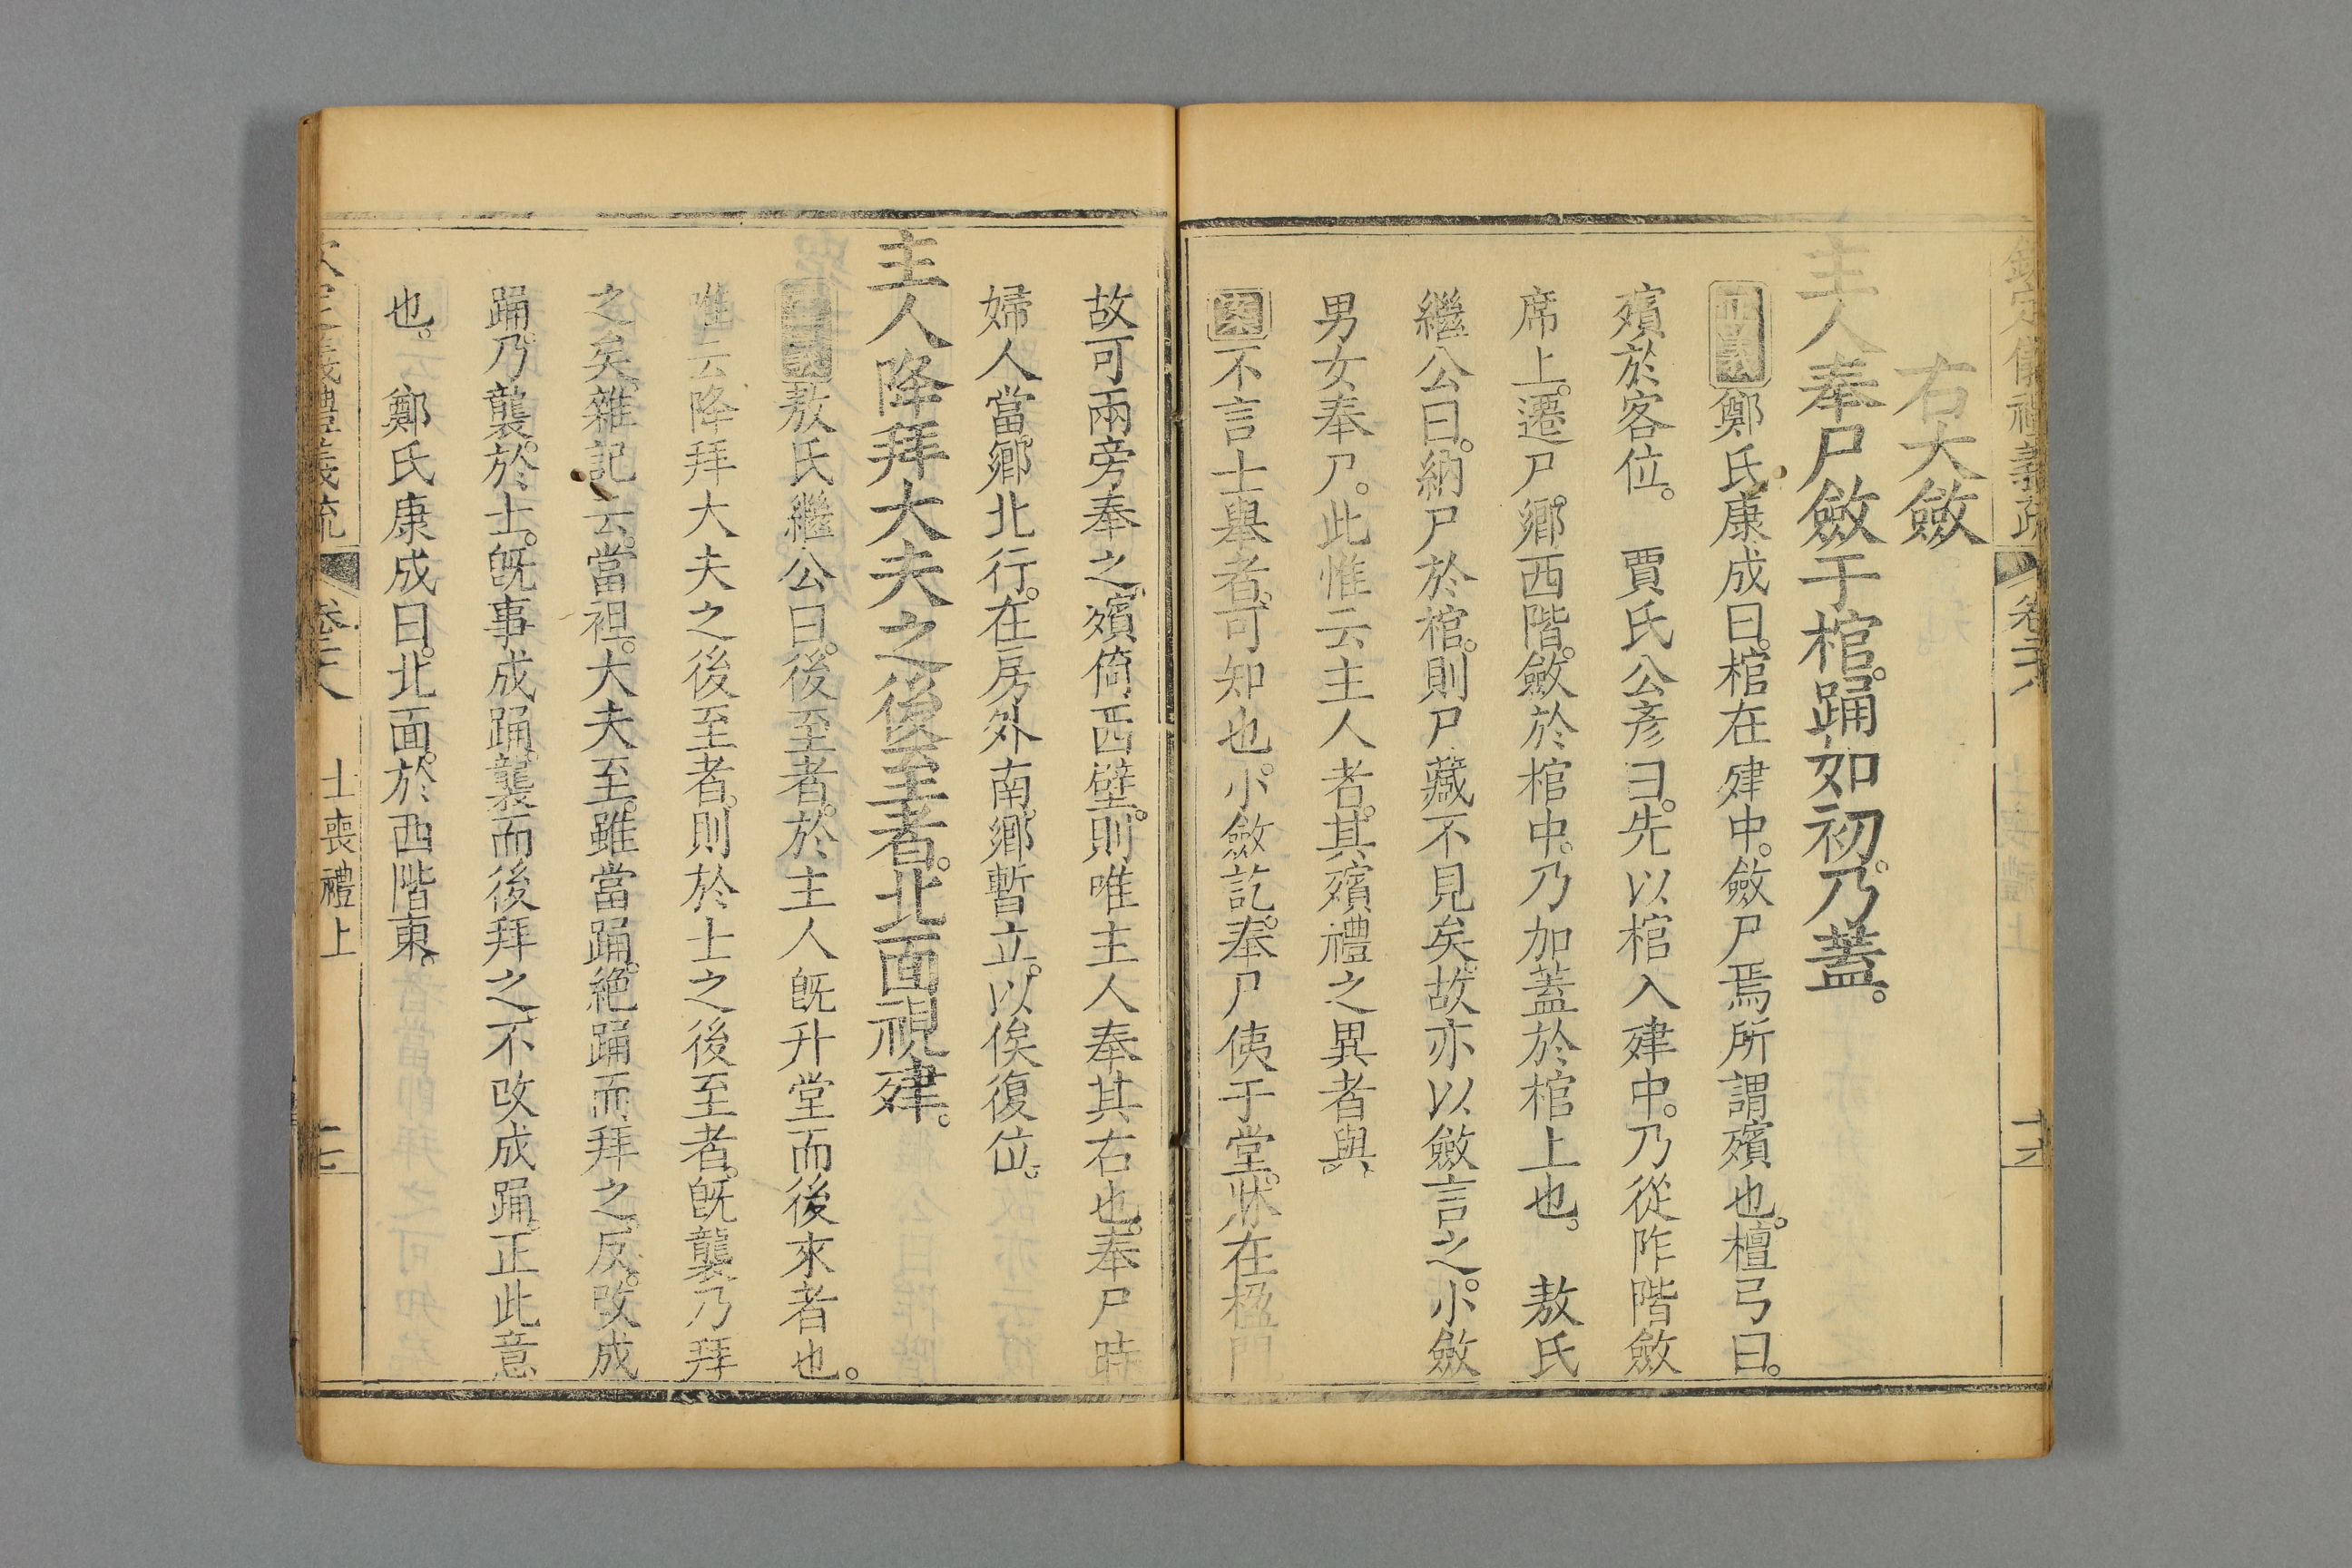 欽定儀禮義疏 卷二十八 士喪禮上 十六
右大斂
主人奉尸斂于棺。踊如初。乃蓋。
正義鄭氏康成曰。棺在肂中。斂尸焉所謂殯也。檀弓曰。
殯於客位。 賈氏公彥曰。先以棺入肂中。乃從阼階斂
席上。遷尸。鄉西階。斂於棺中。乃加蓋於棺上也。 敖氏
繼公曰。納尸於棺。則尸藏不見矣。故亦以斂言之。小斂
男女奉尸。此惟云主人者。其殯禮之異者與。
案不言士舉者。可知也。小斂訖。奉尸侇于堂。牀在楹間
故可兩旁奉之。殯倚西壁。則唯主人奉其右也。奉尸時
婦人當鄉北行。在房外南鄉暫立。以俟復位。
主人降拜大夫之後至者。北面視肂。
正義敖氏繼公曰。後至者。於主人既升堂而後來者也。
唯云降拜大夫之後至者。則於士之後至者。既襲乃拜
之矣。雜記云。當袒。大夫至。雖當踊。絕踊而拜之。反改成
踊。乃襲。於士。既事成踊。襲而後拜之。不改成踊。正此意
也。 鄭氏康成曰。北面。於西階東。
欽定儀禮義疏 卷二十八 士喪禮上 十七